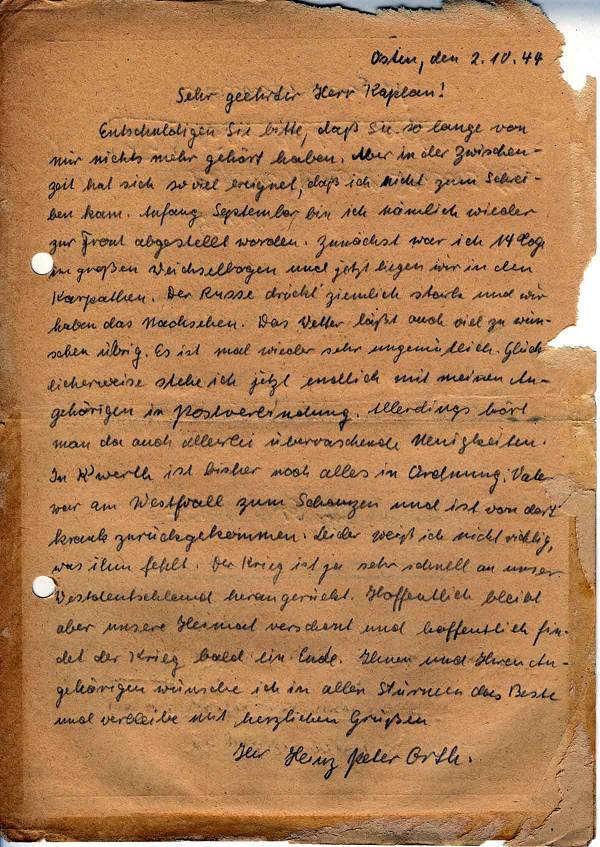 Osten, den 2.10.44
Sehr geehrter Herr Kaplan!
Entschuldigen Sie bitte, daß Sie so lange von
mir nichts mehr gehört haben. Aber in der Zwischen-
zeit hat sich so viel ereignet, daß ich nicht zum Schrei-
ben kam. Anfang September bin ich nämlich wieder
zur Front abgestellt worden. Zunächst war ich 14 Tage
im großen Weichselbogen und jetzt liegen wir in den
Karpathen. Der Russe drückt ziemlich stark und wir
haben das Nachsehen. Das Wetter läßt auch viel zu wün-
schen übrig. Es ist mal wieder sehr ungemütlich. Glück-
licherweise stehe ich jetzt endlich mit meinen An-
gehörigen in Postverbindung. Allerdings hört
man da auch allerlei überraschende Neuigkeiten.
In K'werth ist bisher noch alles in Ordnung. Vater
war am Westwall zum Schanzen und ist von dort
krank zurückgekommen. Leider weiß ich nicht richtig,
was ihm fehlt. Der Krieg ist ja sehr schnell an unser
Westdeutschland herangerückt. Hoffentlich bleibt
aber unsere Heimat verschont und hoffentlich fin-
det der Krieg bald ein Ende. Ihnen und Ihren An-
gehörigen wünsche ich in allen Stürmen das Beste
und verbleibe mit herzlichen Grüßen
Ihr Heinz Peter Orth.